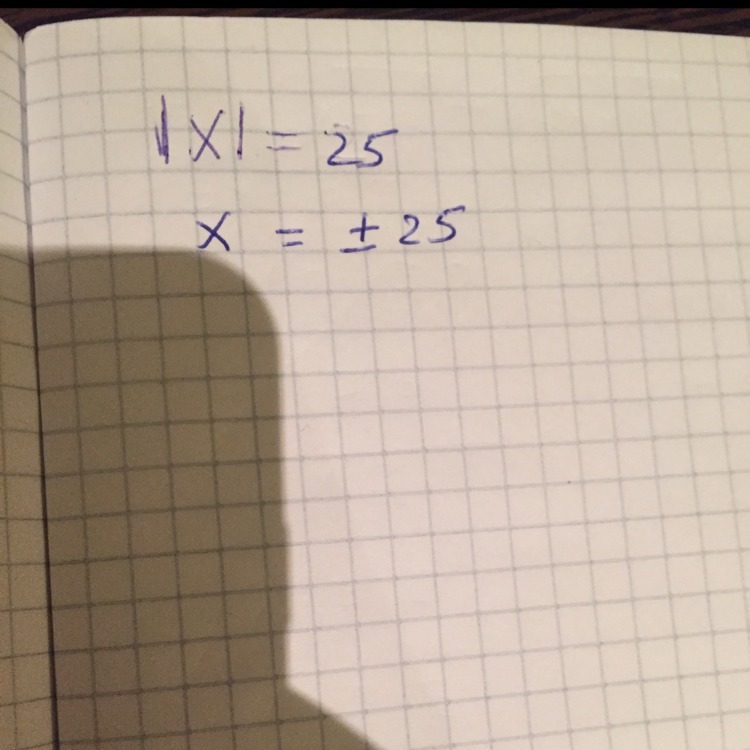 |X| = 25
x = ± 25